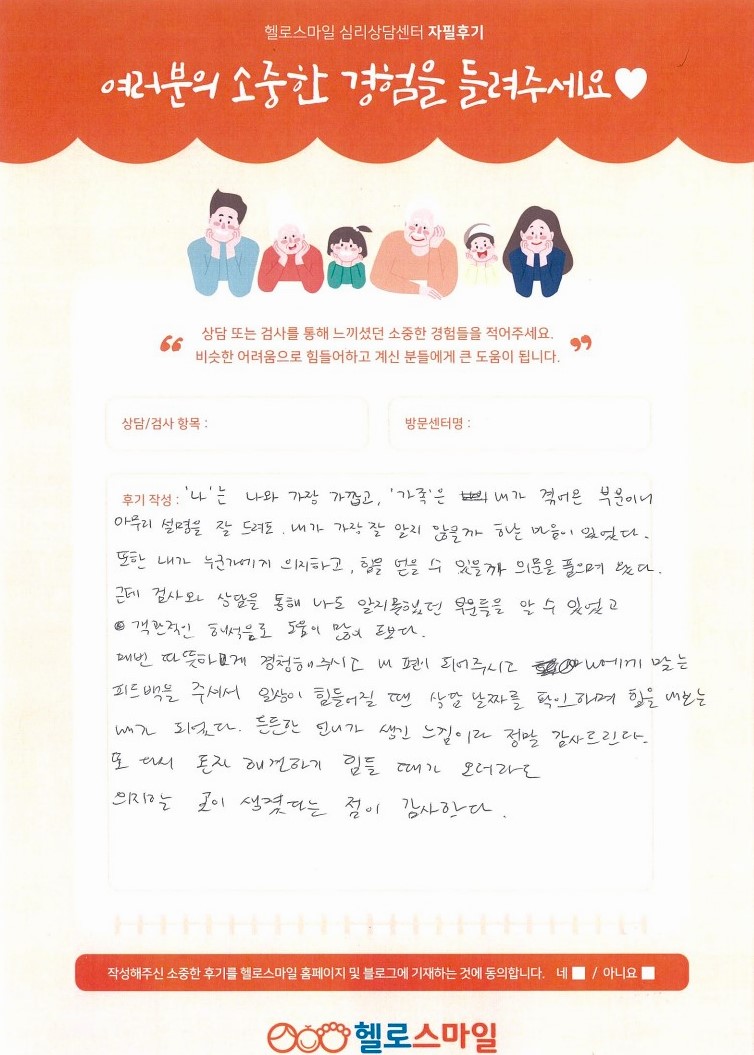 헬로스마일 심리상담센터 자필후기
여러분의 소중한 경험을 들려주세요♥
“ 상담 또는 검사를 통해 느끼셨던 소중한 경험들을 적어주세요. ”
비슷한 어려움으로 힘들어하고 계신 분들에게 큰 도움이 됩니다.
상담/검사 항목 :
방문센터명 :
후기 작성 : '나'는 나와 가장 가깝고, '가족'은 내가 겪어온 부분이니
아무리 설명을 잘 드려도, 내가 가장 잘 알지 않을까 하는 마음이 있었다.
또한 내가 누군가에게 의지하고, 힘을 얻을 수 있을까 의문을 품으며 왔다.
근데 검사와 상담을 통해 나도 알지못했던 부분들을 알 수 있었고
객관적인 해석으로 도움이 많이 됐다.
매번 따뜻하게 경청해주시고 내 편이 되어주시고 나에게 맞는
피드백을 주셔서 일상이 힘들어질 땐 상담 날짜를 확인하며 힘을 내보는
내가 되었다. 든든한 언니가 생긴 느낌이라 정말 감사드린다.
또 다시 혼자 해결하기 힘들 때가 오더라도
의지하는 곳이 생겼다는 점이 감사한다.
작성해주신 소중한 후기를 헬로스마일 홈페이지 및 블로그에 기재하는 것에 동의합니다. 네 ■ / 아니요 ■
헬로스마일